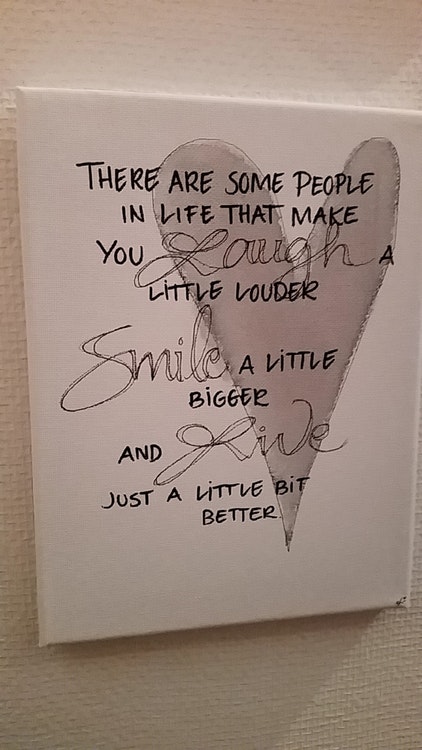 THERE ARE SOME PEOPLE
IN LIFE THAT MAKE
YOU Laugh A
LITTLE LOUDER
Smile A LITTLE
BIGGER
AND Live
JUST A LITTLE BIT
BETTER.